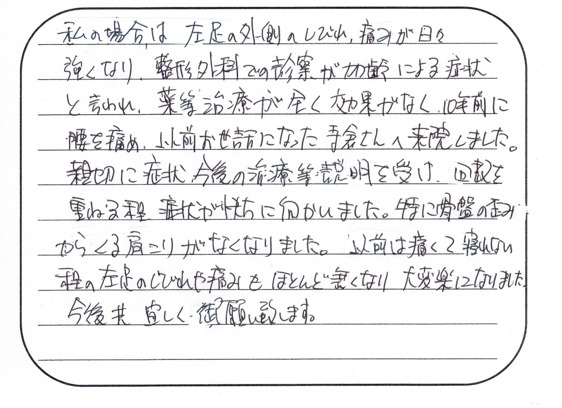 私の場合は 左足の外側のしびれ、痛みが日々
強くなり、整形外科での診察が加齢による症状
と言われ、薬等治療が全く効果がなく、10年前に
腰を痛め、以前お世話になった さんへ来院しました。
親切に症状、今後の治療等説明を受け、回数を
重ねる程 症状が快方に向かいました。特に骨盤の歪み
からくる肩こりがなくなりました。以前は痛くて寝れない
程の左足のしびれや痛みも ほとんど無くなり 大変楽になりました。
今後共 宜しく 御願い致します。